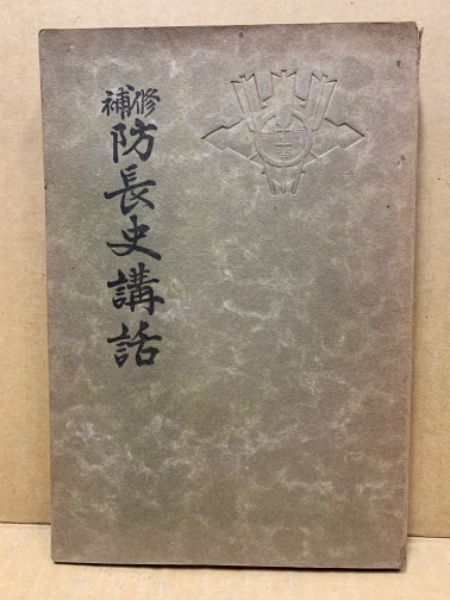 修補
防長史講話